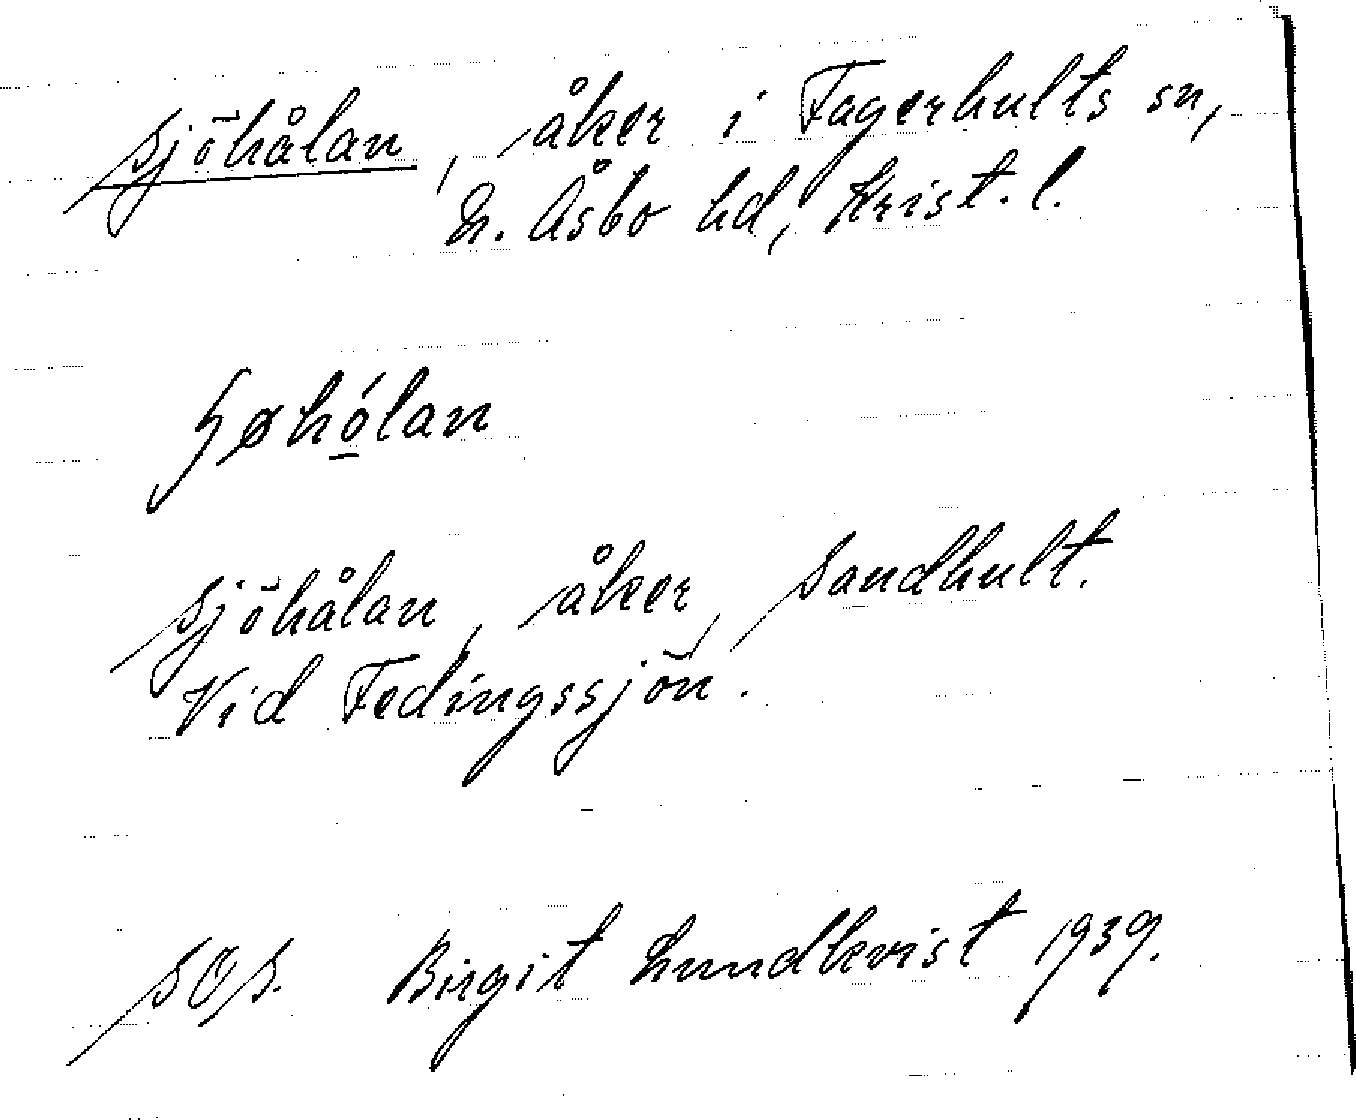 sjöhålan, åker i Fagerhults sn,
N. Åsbo hd, Krist. l.
ʂøhó̲lan
sjöhålan, åker, Sandhult.
Vid Fedingssjön.
SOS. Birgit Lundkvist 1939.